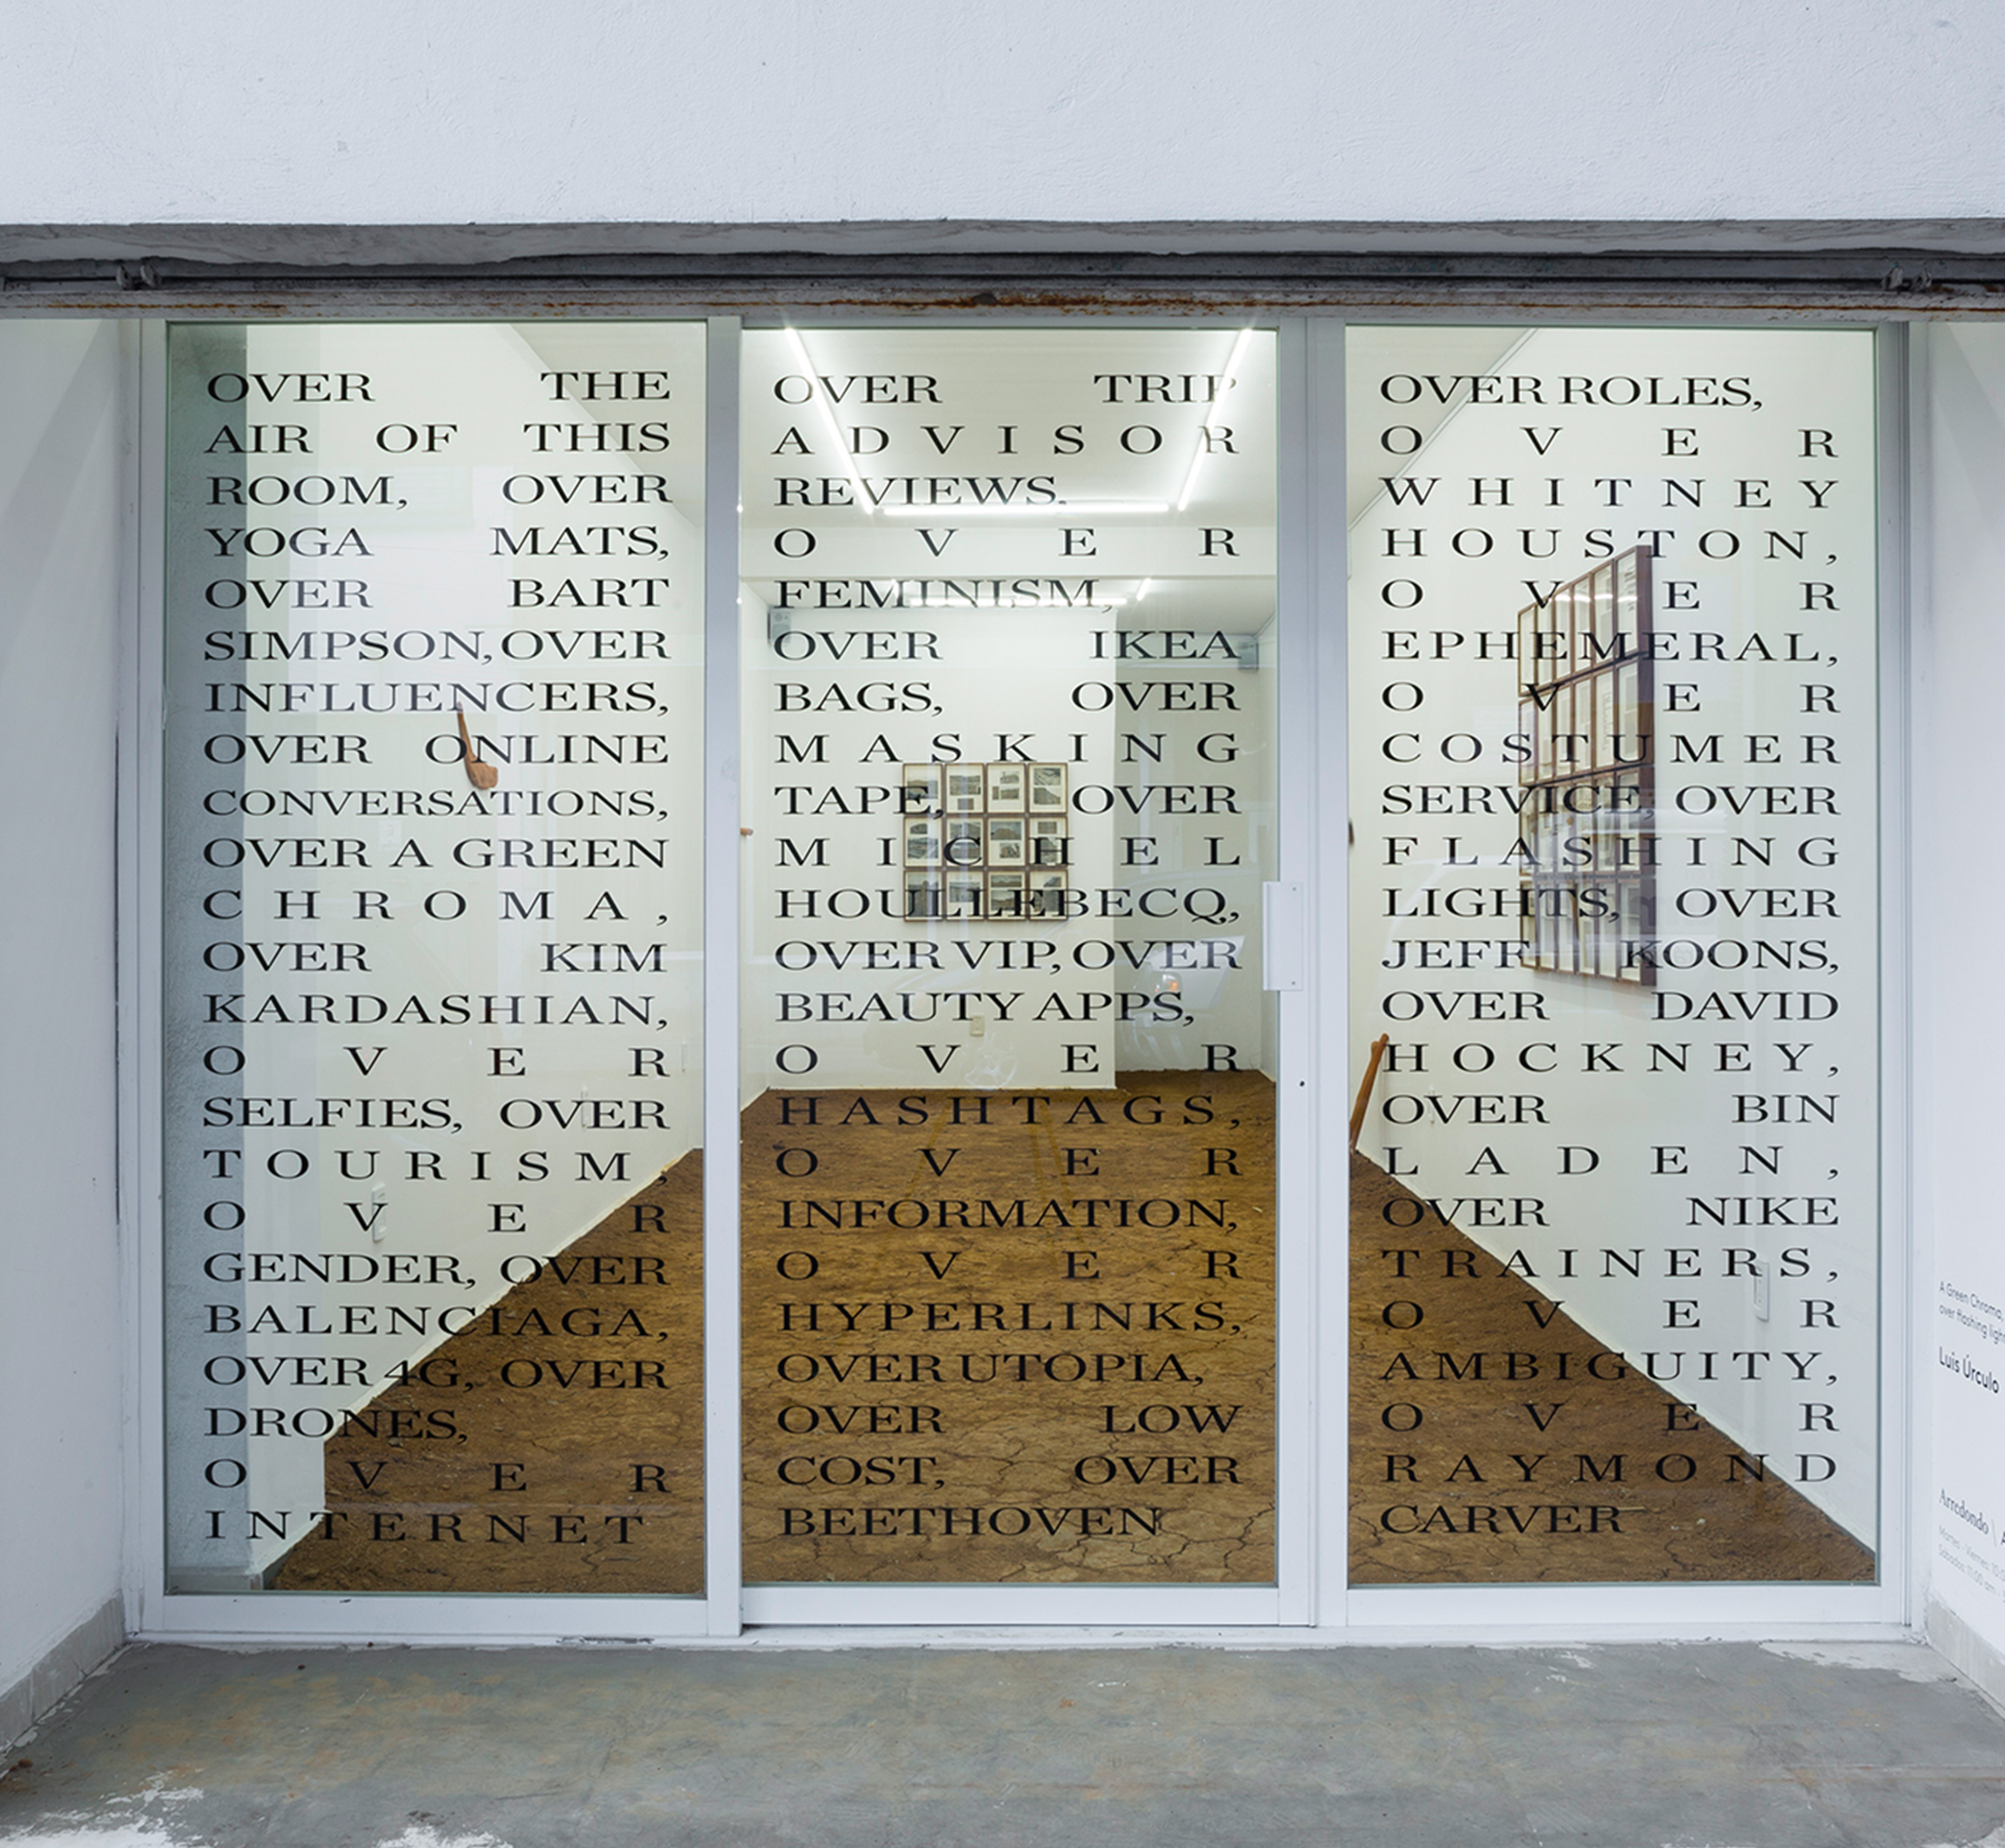 OVER THE
AIR OF THIS
ROOM, OVER
YOGA MATS,
OVER BART
SIMPSON, OVER
INFLUENCERS,
OVER ONLINE
CONVERSATIONS,
OVER A GREEN
CHROMA,
OVER KIM
KARDASHIAN,
OVER
SELFIES, OVER
TOURISM,
OVER
GENDER, OVER
BALENCIAGA,
OVER 4G, OVER
DRONES,
OVER
INTERNET
OVER TRIP
ADVISOR
REVIEWS,
OVER
FEMINISM,
OVER IKEA
BAGS, OVER
MASKING
TAPE, OVER
MICHEL
HOULLEBECQ,
OVER VIP, OVER
BEAUTY APPS,
OVER
HASHTAGS,
OVER
INFORMATION,
OVER
HYPERLINKS,
OVER UTOPIA,
OVER LOW
COST, OVER
BEETHOVEN
OVER ROLES,
OVER
WHITNEY
HOUSTON,
OVER
EPHEMERAL,
OVER
COSTUMER
SERVICE, OVER
FLASHING
LIGHTS, OVER
JEFF KOONS,
OVER DAVID
HOCKNEY,
OVER BIN
LADEN,
OVER NIKE
TRAINERS,
OVER
AMBIGUITY,
OVER
RAYMOND
CARVER
A Green Chroma,
over flashing
Luis Úrculo
Arredondo \
Martes - Viernes
Sábados 11:00 am